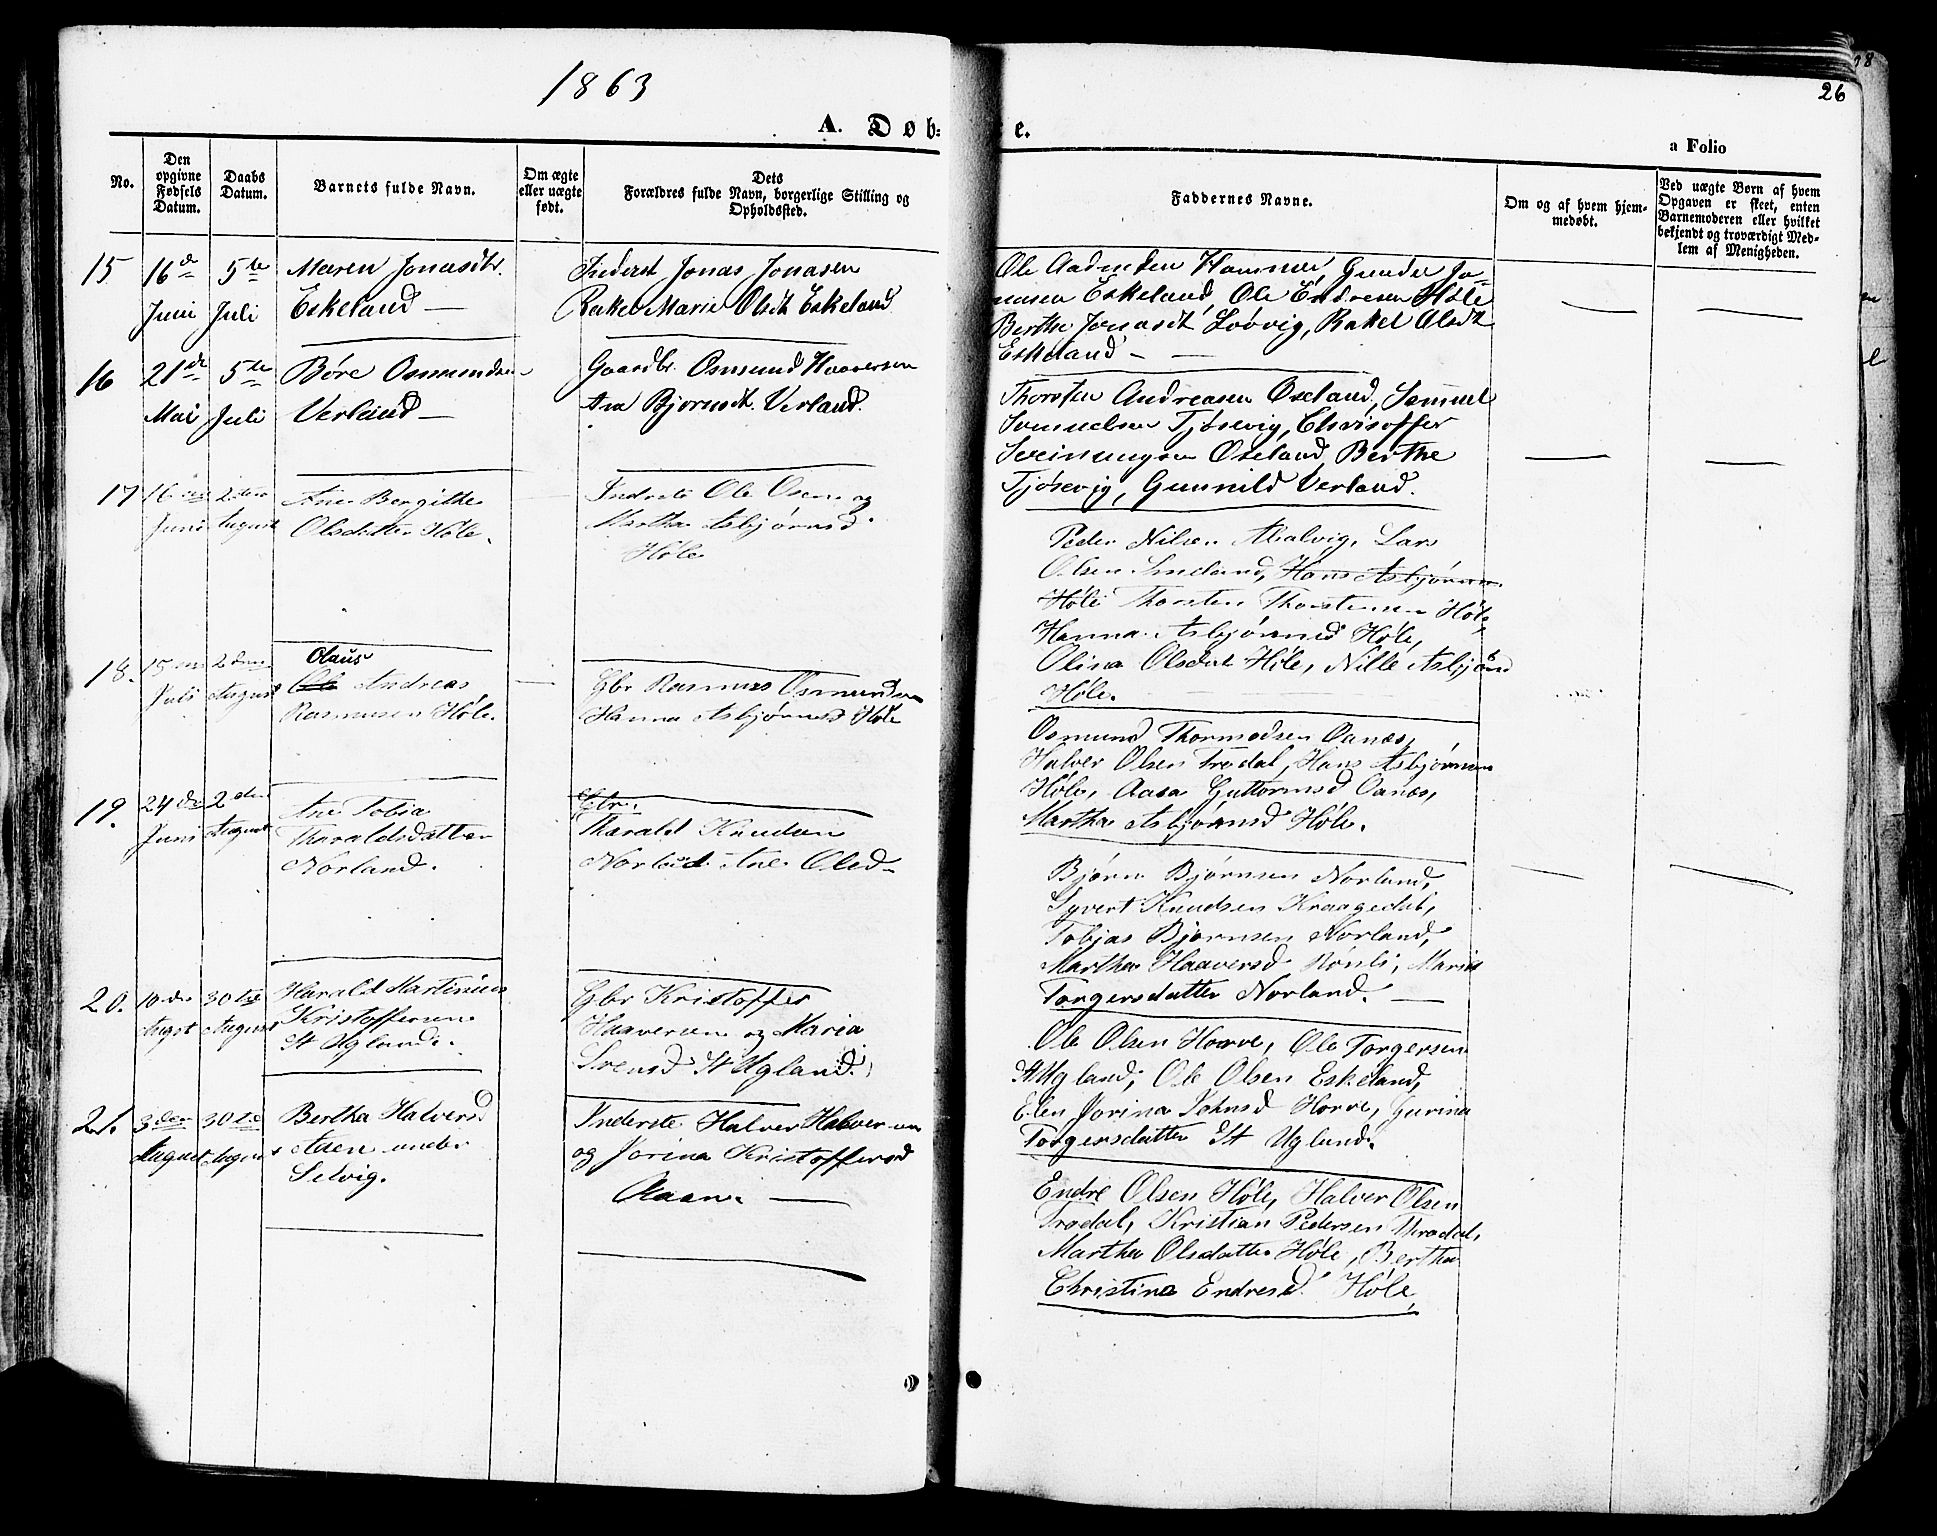 1863
26
A. Døb=
e.
a Folio
No.
Den opgivne Fødsels Datum.
Daabs Datum.
Barnets fulde Navn.
Om ægte eller uægte født.
Dets Forældres fulde Navn, borgerlige Stilling og Opholdssted.
Faddernes Navne.
Om og af hvem hjemmedøbt.
Ved uægte Børn af hvem Opgaven er skeet, enten Barnemoderen eller hvilket bekjendt og troværdigt Medlem af Menigheden.
15 16de Juni 5te Juli
Maren Jonasdtr.
Eskeland —
Inderst Jonas Jonasen
Rakel Marie Olsdt Eskeland
Ole Hammer, Gunder Jo-
nasen Eskeland, Ole Endresen Høle
Berthe Jonasdt Løvvig, Rakel Olsdt
Eskeland —
16 21de Mai 5te Juli
Børe Osmundsen
Verland —
Gaardbr. Osmund Haaversen
Ana Bjørnsdt. Verland.
Thorsten Andreasen Oseland, Samuel
Samuelsen Tjøsevig, Chrisoffer
Oseland, Berthe
Tjøsevig, Gunnild Verland.
17 16 Juni 2den August
Ane Bergithe
Olsdatter Høle.
Inderste Ole Osen og
Martha Asbjørnsd.
Høle
Peder Nilsen Lars
Olsen Hans Asbjørnsen
Høle Thorsten Thorstensen Høle,
Hanna Asbjørnsd Høle,
Olina Olsdat Høle, Nille Asbjørnsd
Høle.
18. 15 Juli 2den August
Olaus
Ole Andreas
Rasmusen Høle.
Gbr Rasmus Osmundsen
Hanna Asbjørnsd Høle
Osmund Thormodsen Oanæs,
Halver Olsen Trodal, Hans Asbjørnsen
Høle, Aasa Guttormsd Oanæs,
Martha Asbjørnsd Høle.
19. 24de Juni 2den August
Ane Tobia
Tharaldsdatter
Norland.
Gbr.
Tharald Knudsen
Norland Ane Olsd
Bjørn Bjørnsen Norland,
Syvert Knudsen Kraagedal,
Tobias Bjørnsen Norland,
Martha Haaversd Marie
Torgersdatter Norland. —
20. 10de Augst 30te August
Harald Martinius
Kristoffersen
St Ugland.
Gbr Kristoffer
Haaversen og Maria
Svensd St Ugland.
Ole Olsen Horve, Ole Torgersen
St Ugland, Ole Olsen Eskeland,
Elen Jorina Johnsd Horve, Gurina
Torgersdatter St Ugland.
21. 3der August 30te August
Bertha Halversd
Aasen under
Selvig.
Inderste Halver Halversen
og Jorina Kristoffersd
Aasen. —
Endre Olsen Høle, Halver Olsen
Trodal, Kristian Pedersen Trodal,
Martha Olsdatter Høle, Bertha
Christina Endresd. Høle,